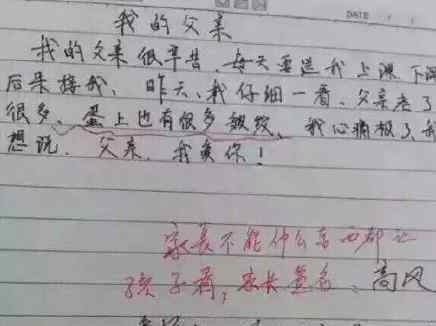 我的父亲
我的父亲很辛苦 每天要送我上课 下课
后来接我、昨天、我仔细一看、父亲老了
很多、蛋上也有很多皱纹、我心痛极了、我
想说、父亲、我爱你!
家长不能什么东西都让
孩子看,家长签名、高风
DATE